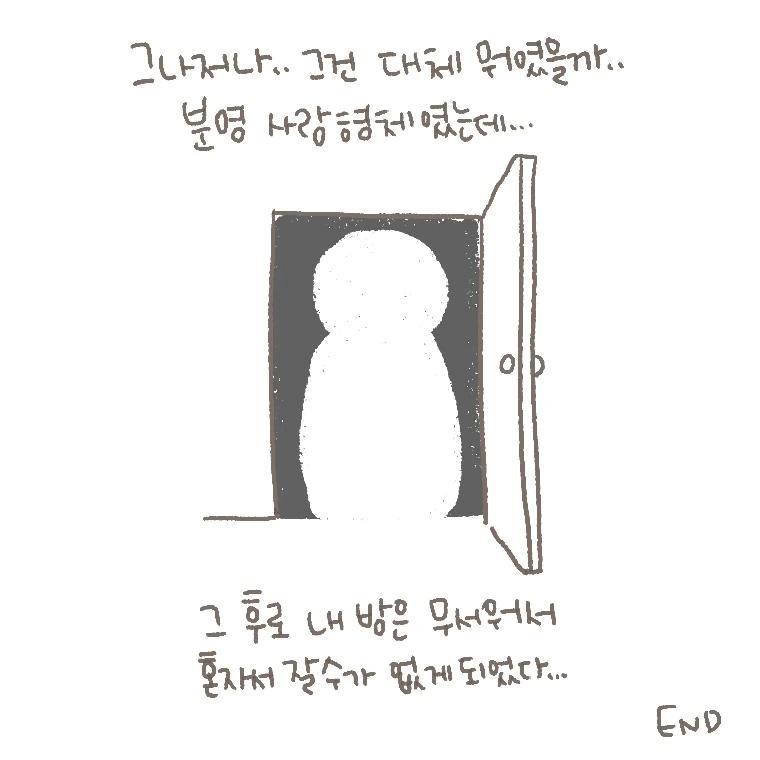 그나저나.. 그건 대체 뭐였을까..
분명 사람형체였는데...
그 후로 내 방은 무서워서
혼자서 잘수가 없게되었다...
END